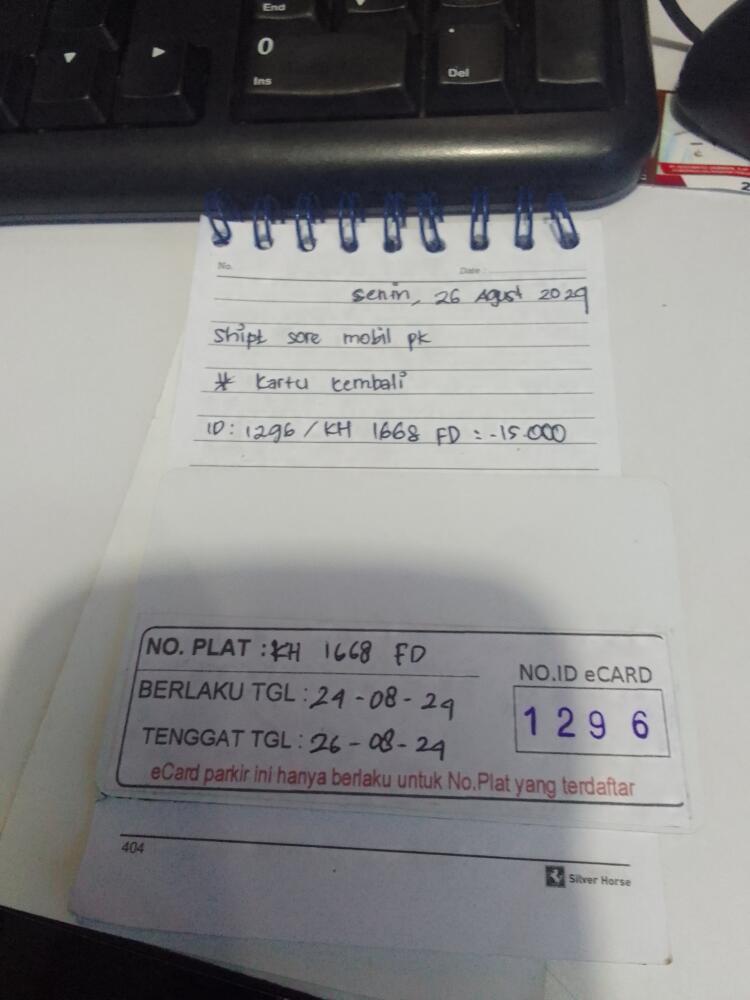 End
0
Ins
.
Del
No.
Date :
Senin, 26 Agust 2024
Shipt sore mobil pk
* Kartu kembali
ID: 1296 / KH 1668 FD = -15.000
NO. PLAT : KH 1668 FD
BERLAKU TGL : 24-08-24
TENGGAT TGL : 26-08-24
NO.ID eCARD
1296
eCard parkir ini hanya berlaku untuk No.Plat yang terdaftar
404
Silver Horse